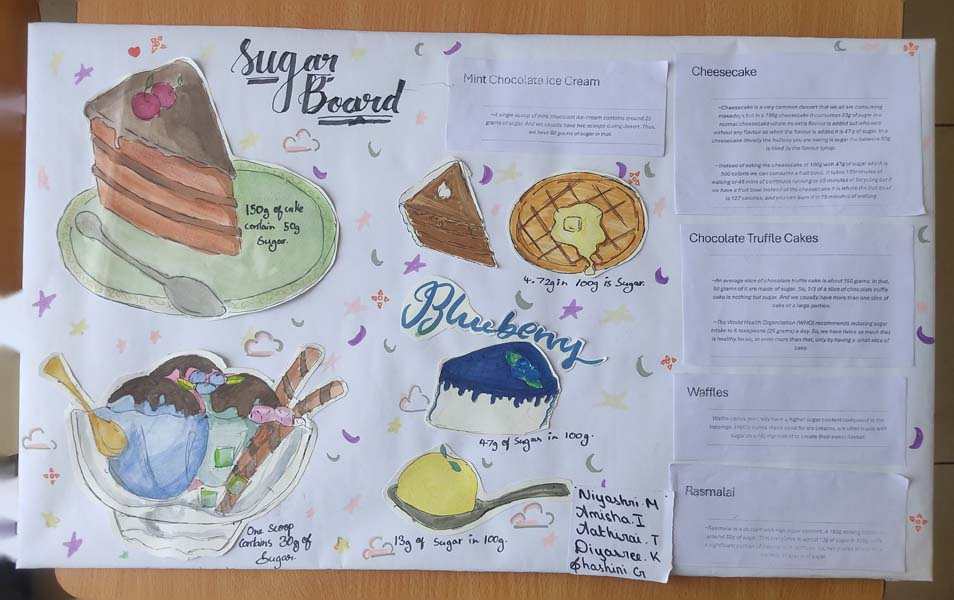 Sugar
Board
150g of cake
contain 50g
Sugar.
One scoop
contains 30g of
Sugar.
4.72g in 100g is Sugar.
Blueberry
47g of Sugar in 100g.
13g of sugar in 100g.
Niyashri.M
Amisha.I
Diyasree.K
Shashini G
Mint Chocolate Ice Cream
~A single scoop of mint chocolate ice-cream contains around 30
grams of sugar. And we usually have two scoops during desert. Thus,
Cheesecake
~Cheesecake is a very common dessert that we all are consuming
nowadays but in a 100g cheesecake it consumes 23g of sugar in a
normal cheesecake where no extra flavour is added but who eats
without any flavour so when the flavour is added it is 47 g of sugar. In a
cheesecake literally the half/way you are eating is sugar the balance 53g
~ Instead of eating the cheesecake of 100g with 47g of sugar which is
500 calorie we can consume a fruit bowl. It takes
have a fruit bowl instead of the cheesecake it is where the fruit bowl
is 127 calories, and you can burn it in 15 minutes of walking
Chocolate Truffle Cakes
~An average slice of chocolate truffle cake is about 150 grams. In that,
50 grams of it are made of sugar. So, 1/3 of a slice of chocolate truffle
cake is nothing but sugar. And we usually have more than one slice of
cake or a large portion.
~The World Health Organization (WHO) recommends reducing sugar
intake to 6 teaspoons (25 grams) a day. So, we have twice as much that
is healthy for us, or even more than that, only by having a small slice of
cake.
Waffles
Waffle cones generally have a higher sugar content compared to the
Rasmalai